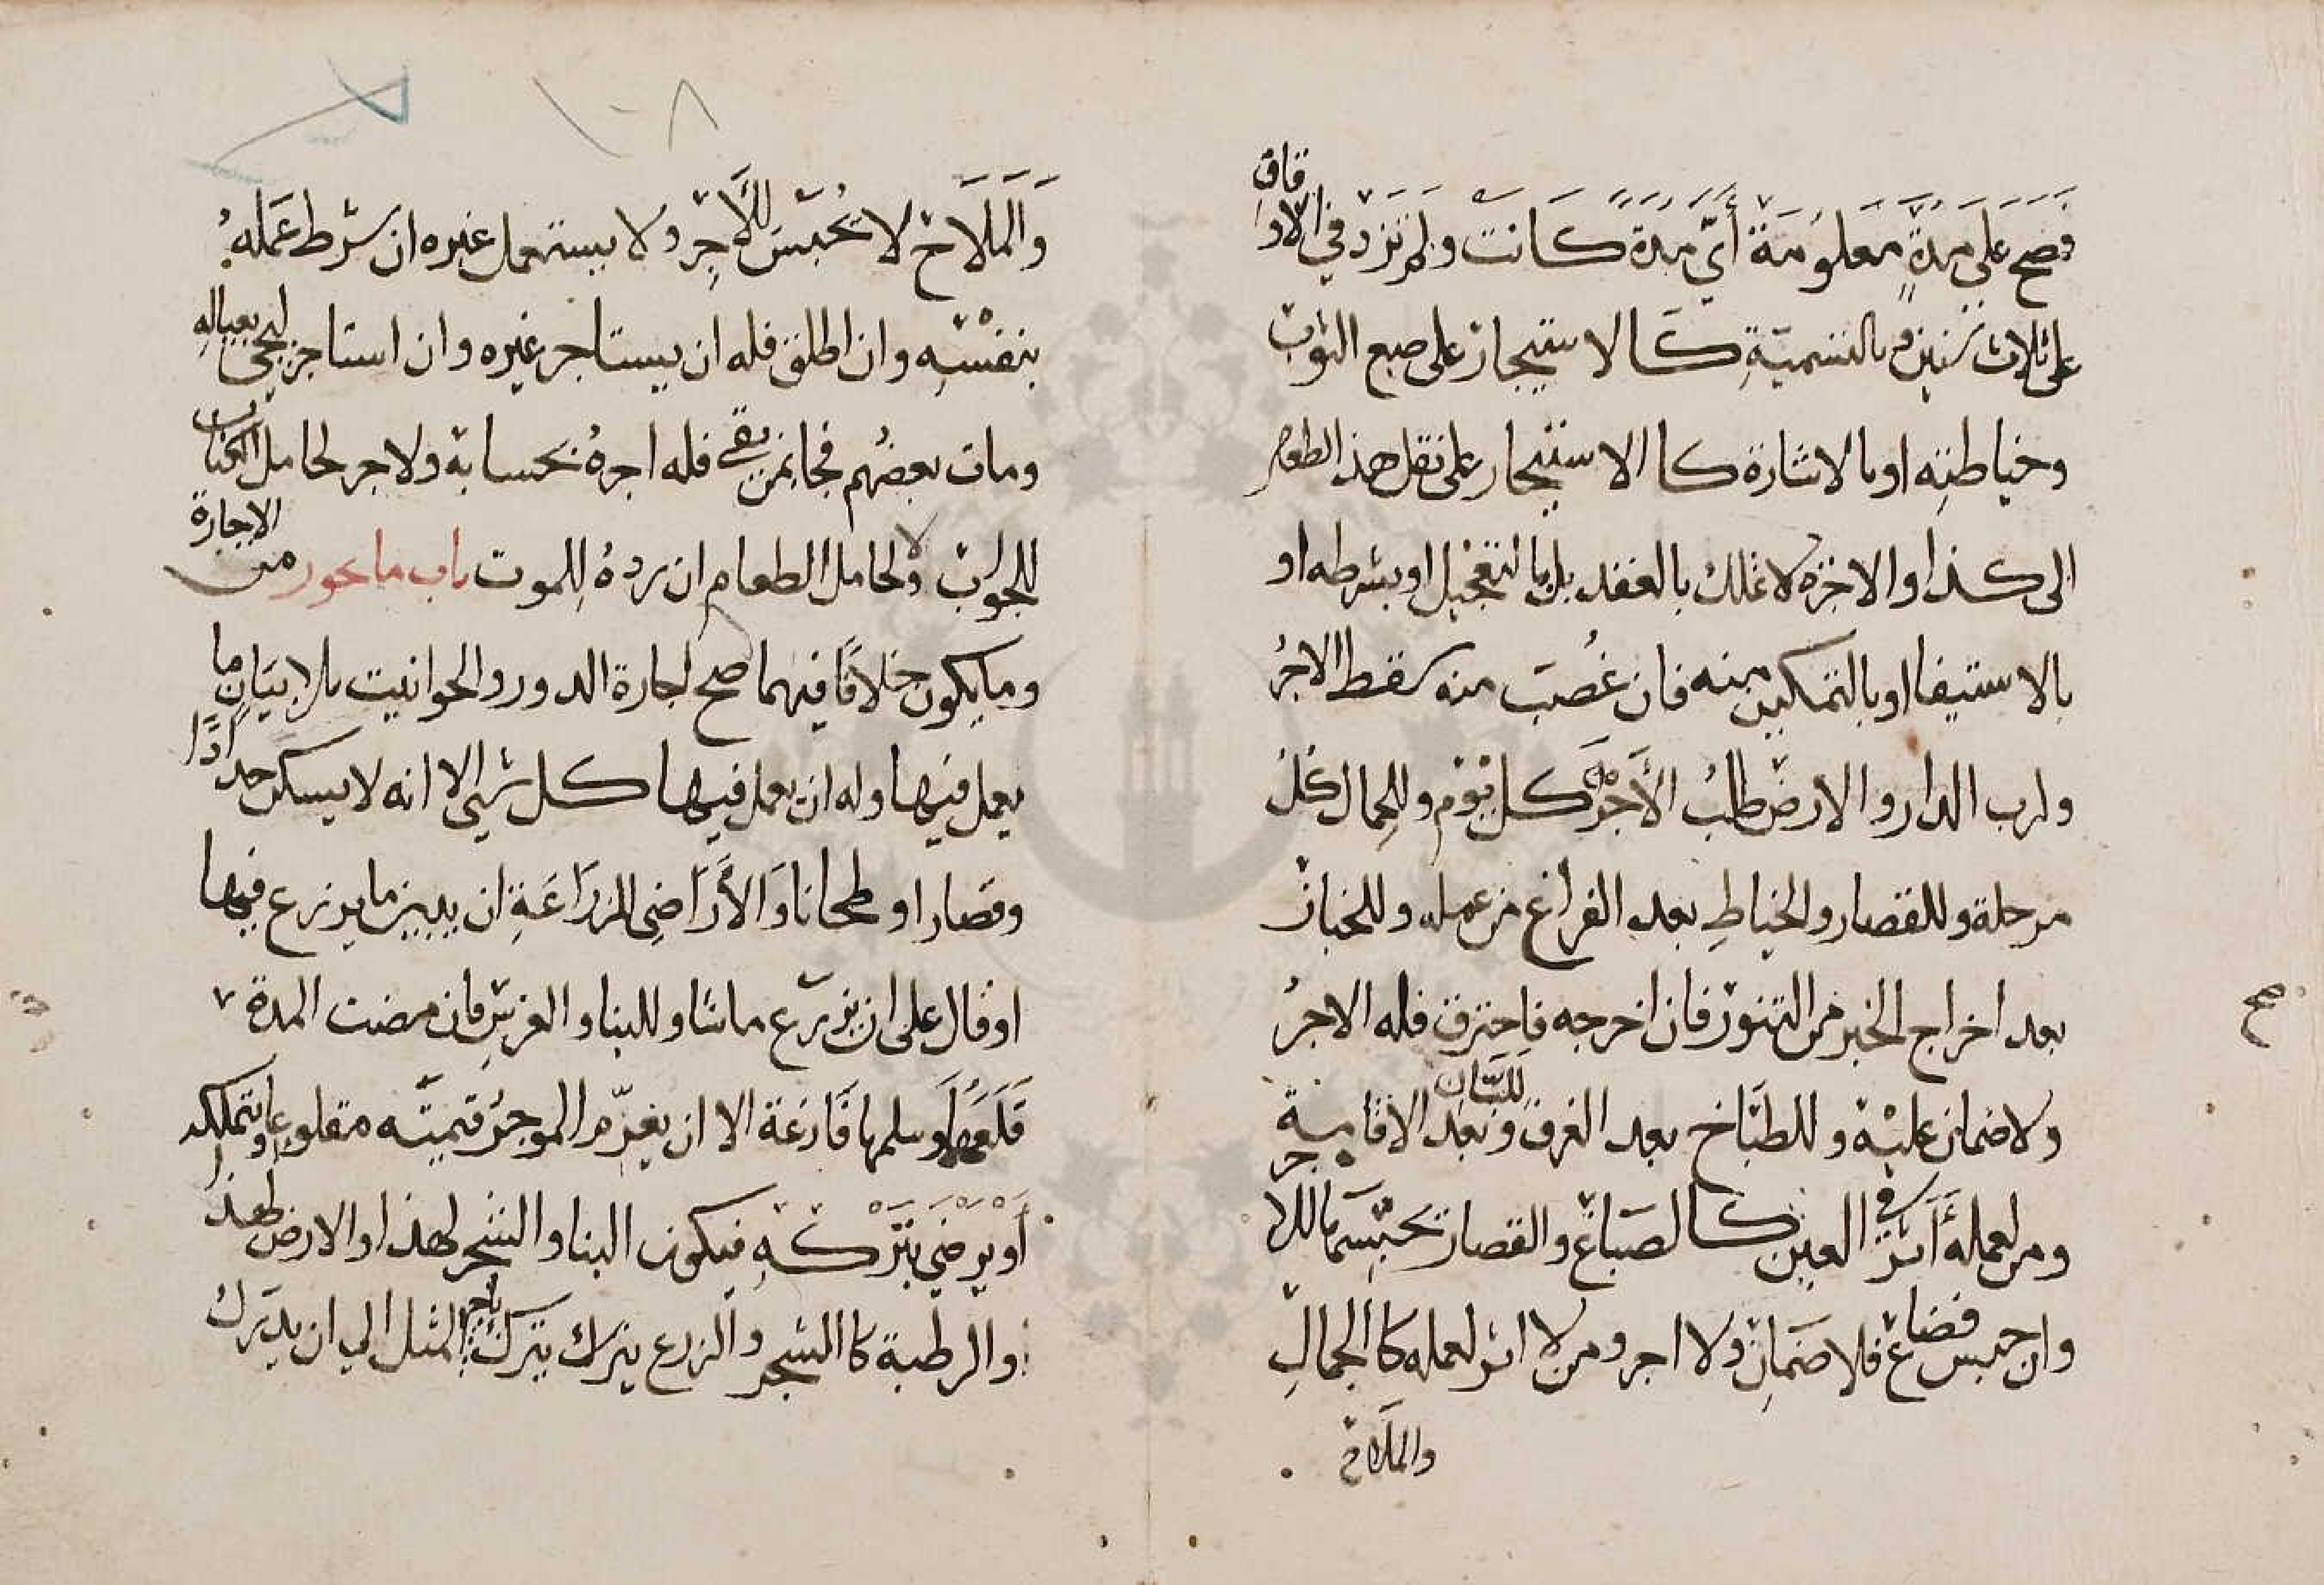 فصح على مدة معلومة أيّ مدة كانت ولم تزد في الاوقاف
على ثلاث سنين و بالتسمية كالاستيجار على صبع الثوب
وخياطته او بالاشارة كا الاستيجار على نقل هذا الطعام
الى كذا والاجرة لا تملك بالعقد بل بالتعجيل او بشرطه او
بالاستيفا او بالتمكين منه فان غُصبَ منه سقط الاجرُ
ولرب الدار والارض طلبُ الأجر كل يوم وللجمال كلُ
مرحلة وللقصار والخياطِ بعد الفراغ من عمله وللخباز
بعد اخراج الخبز من التنور فان اخرجه فاحترق فله الاجرُ
صح
ولا ضمان عليه وللطبّاخ بعد الغرف وللبّان بعد الاقامة
ومن لعمله أثر في العين كالصباغ والقصار يحبسهما للاجر
وان حبس فضاع فلا ضمان ولا اجر ومن لا اثر لعمله كا الجمالِ
والملاح
١٠٨
وَالملَاح لا يُحبسَ للأَجرِ ولا يستعمل غيره ان شرط عَمَلهُ
بنفسْهِ وان اطلق فله ان يستاجر غيره وان استاجر ليجي بعيالهِ
ومات بعضُهم فجا بمن بقي فله اجرهُ بحسابه ولا اجر لحامل الكتاب
للجواب ولا لحامل الطعام ان ردهُ لِلموت باب ما يجوز من الاجارة
وما يكون خلافًا فيهما صح اجارة الدور والحوانيت بلا بيَانِ ما
يعمل فيها وله ان يعمل فيها كل شيٍ الا انه لا يسكن حدادًا
وقصارا او طحانا وَالأَرَاضِي للزرَاعَةِ ان يبين ما يزرع فيها
او قال على ان يزرع ما شا وللبنا والغرسِ فان مضت المدة
قَلَعَهُمَا وسلمها فَارغة الا ان يغرّم الموجرُ قيمتَه مقلوعا ويتملكه
أَوْ يرْضَي بتَرْكهِ فيكون البنا والشجر لهذا والارض لهذا
والرطبة كا الشجر والزرع يترك بترك باجر المثل الي ان يدرَك